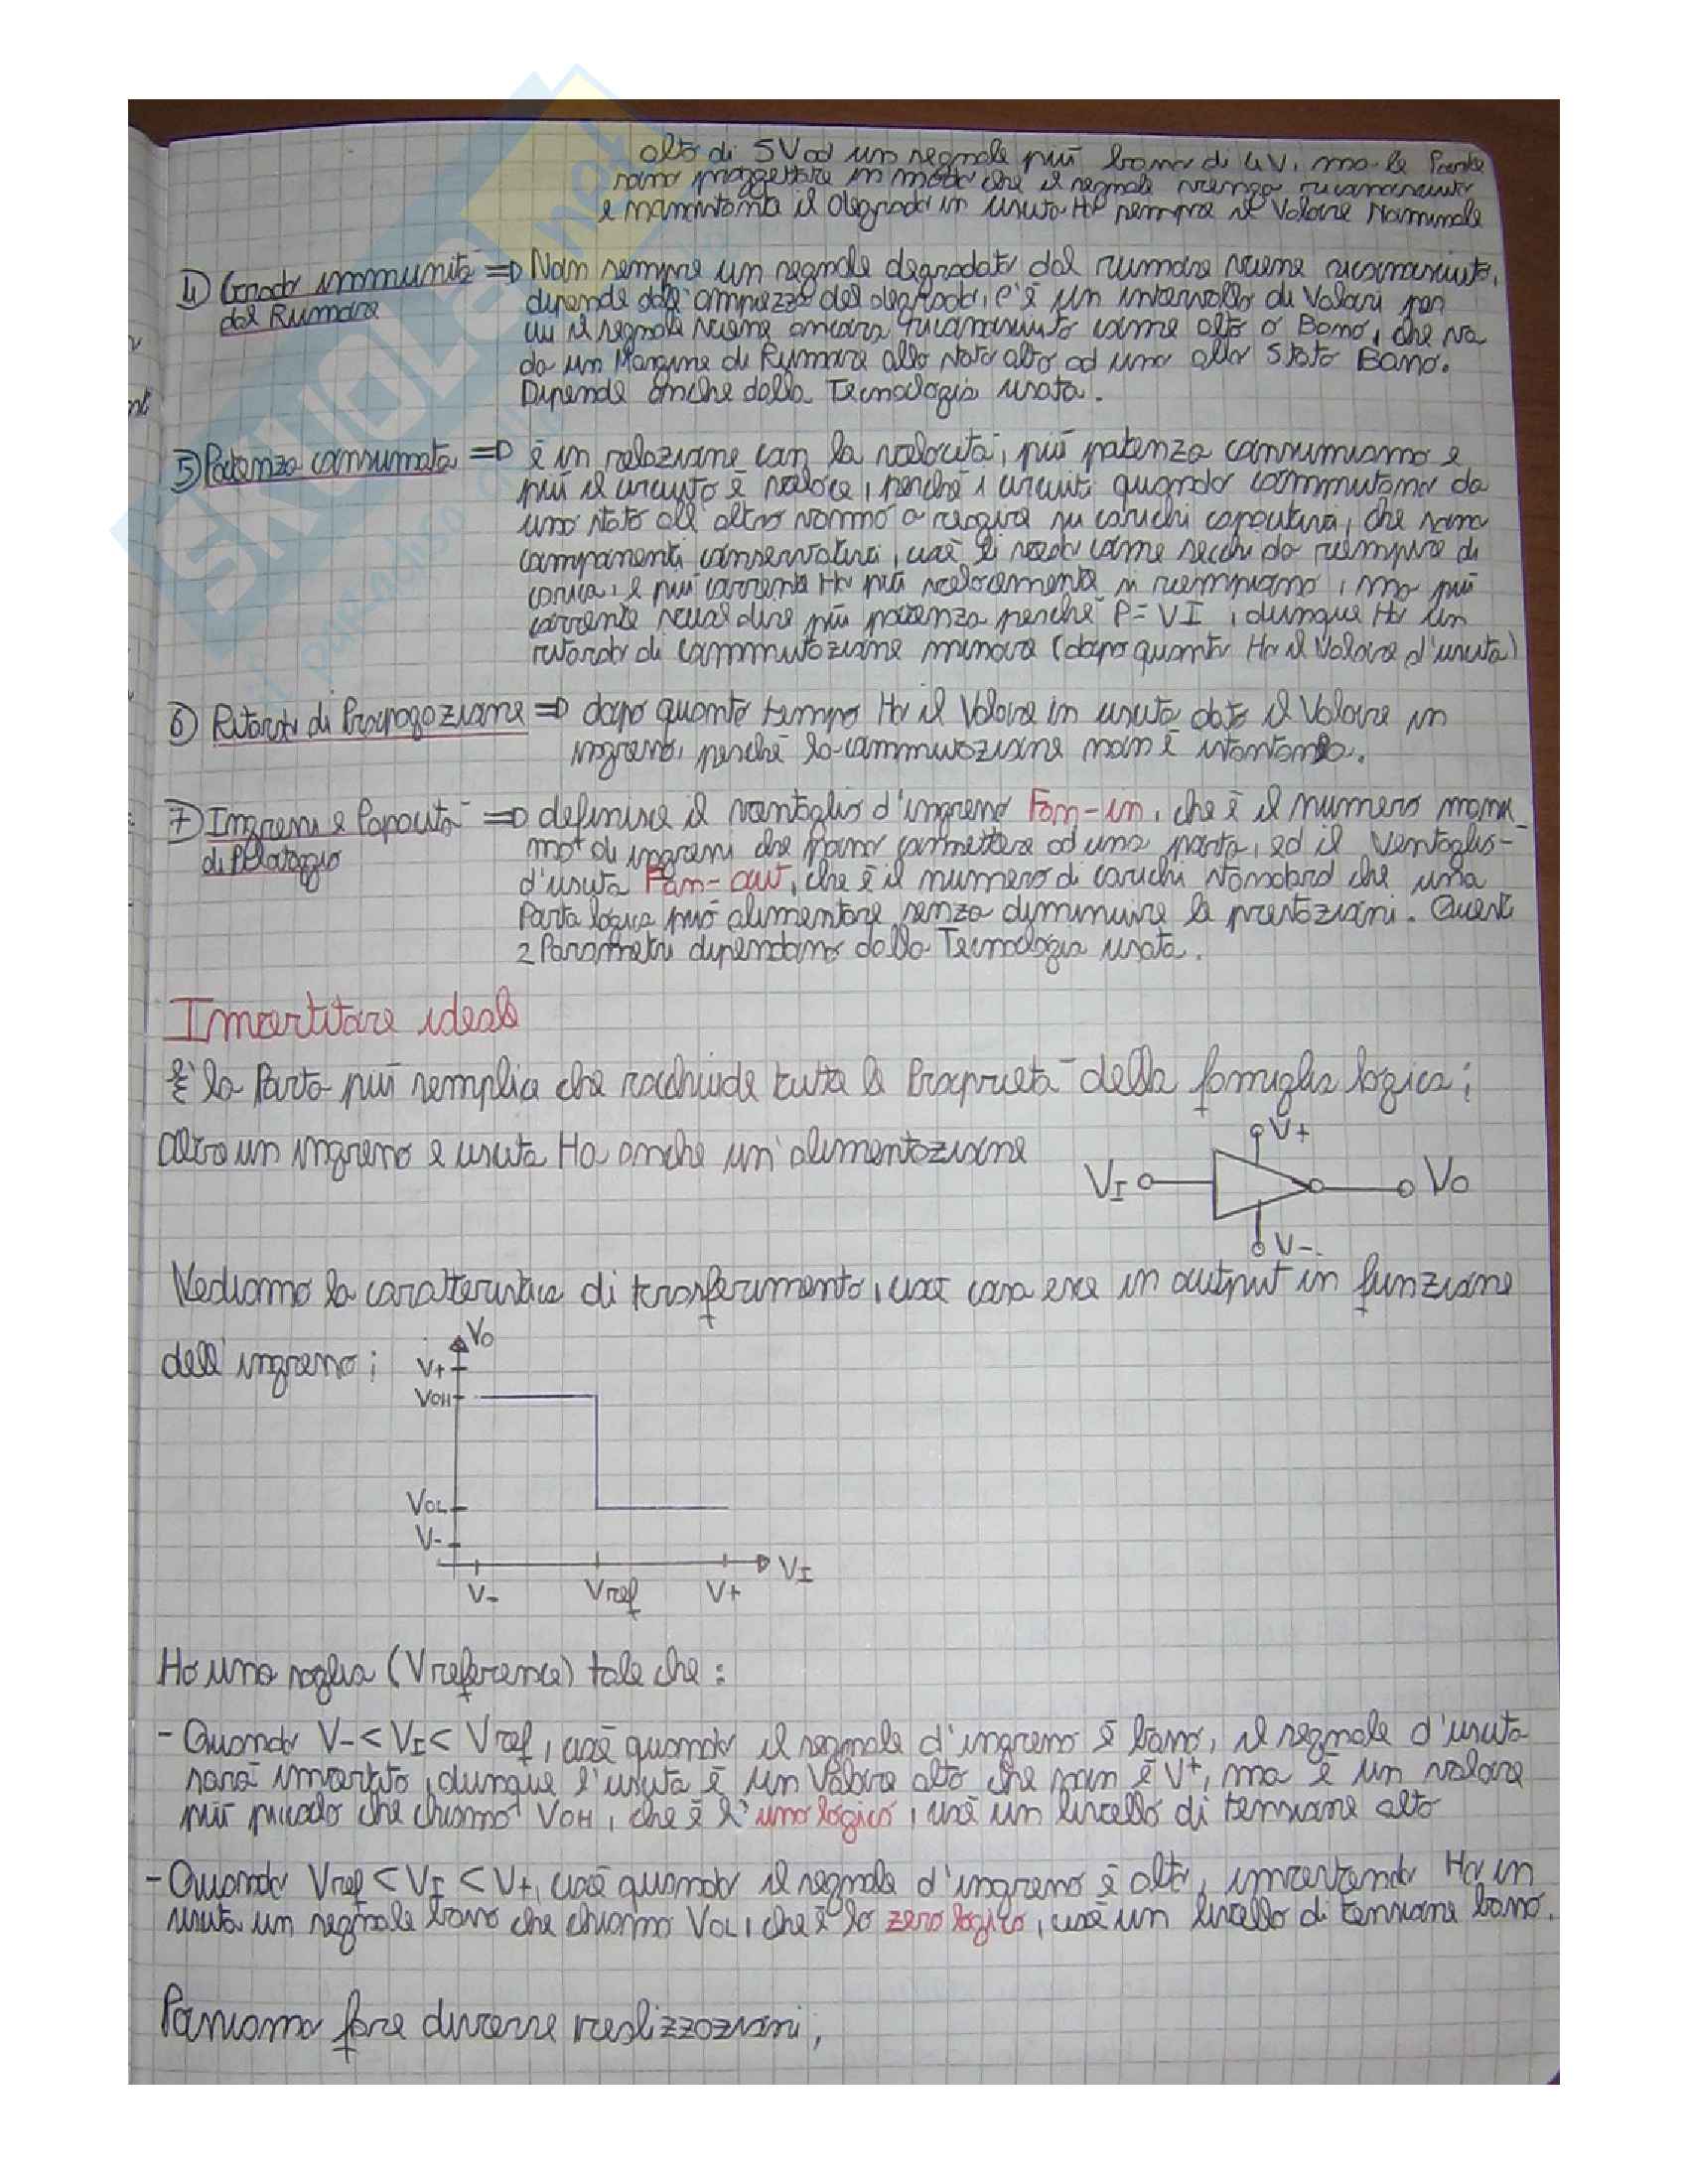 alto di 5V od un segnale più basso di 4V, ma le Porte
sono progettate in modo che il segnale venga riconosciuto
e nonostante il degrado in uscita Ho sempre il Valore Nominale
4) Grado immunità => Non sempre un segnale degradato dal rumore viene riconosciuto,
dal Rumore
dipende dall'ampiezza del degrado, c'è un intervallo di Valori per
cui il segnale viene ancora riconosciuto come alto o Basso, che va
da un Margine di Rumore allo stato alto ad uno allo Stato Basso.
Dipende anche dalla Tecnologia usata.
5) Potenza consumata => è in relazione con la velocità, più potenza consumiamo e
più il circuito è veloce, perché i circuiti quando commutano da
uno stato all'altro vanno a reagire su carichi capacitivi, che sono
componenti conservativi, cioè li vedo come secchi da riempire di
carica, e più corrente Ho più velocemente si riempiono, ma più
corrente vuol dire più potenza perché P=VI, dunque Ho un
ritardo di commutazione minore (dopo quanto Ho il Valore d'uscita)
6) Ritardo di Propagazione => dopo quanto tempo Ho il Valore in uscita dato il Valore in
ingresso, perché la commutazione non è istantanea.
7) Ingressi e Capacità => definisce il ventaglio d'ingresso Fan-in, che è il numero massi-
di Pilotaggio
mo di ingressi che posso connettere ad una porta, ed il Ventaglio
d'uscita Fan-out, che è il numero di carichi standard che una
Porta logica può alimentare senza diminuire le prestazioni. Questi
2 Parametri dipendono dalla Tecnologia usata.
Invertitore ideale
È la Porta più semplice che racchiude tutte le Proprietà della famiglia logica;
oltre un ingresso e uscita Ha anche un'alimentazione
V+
VI
VO
V-
Vediamo la caratteristica di trasferimento, cioè cosa esce in output in funzione
dell'ingresso;
VO
V+
VOH
VOL
V-
VI
V-
Vref
V+
Ho una soglia (Vreference) tale che:
- Quando V- < VI < Vref, cioè quando il segnale d'ingresso è basso, il segnale d'uscita
sarà invertito, dunque l'uscita è un Valore alto che non è V+, ma è un valore
più piccolo che chiamo VOH, che è l'uno logico, cioè un livello di tensione alto
- Quando Vref < VI < V+, cioè quando il segnale d'ingresso è alto, invertendo Ho in
uscita un segnale basso che chiamo VOL, che è lo zero logico, cioè un livello di tensione basso.
Possiamo fare diverse realizzazioni;
SKUOLA.net
il paradiso